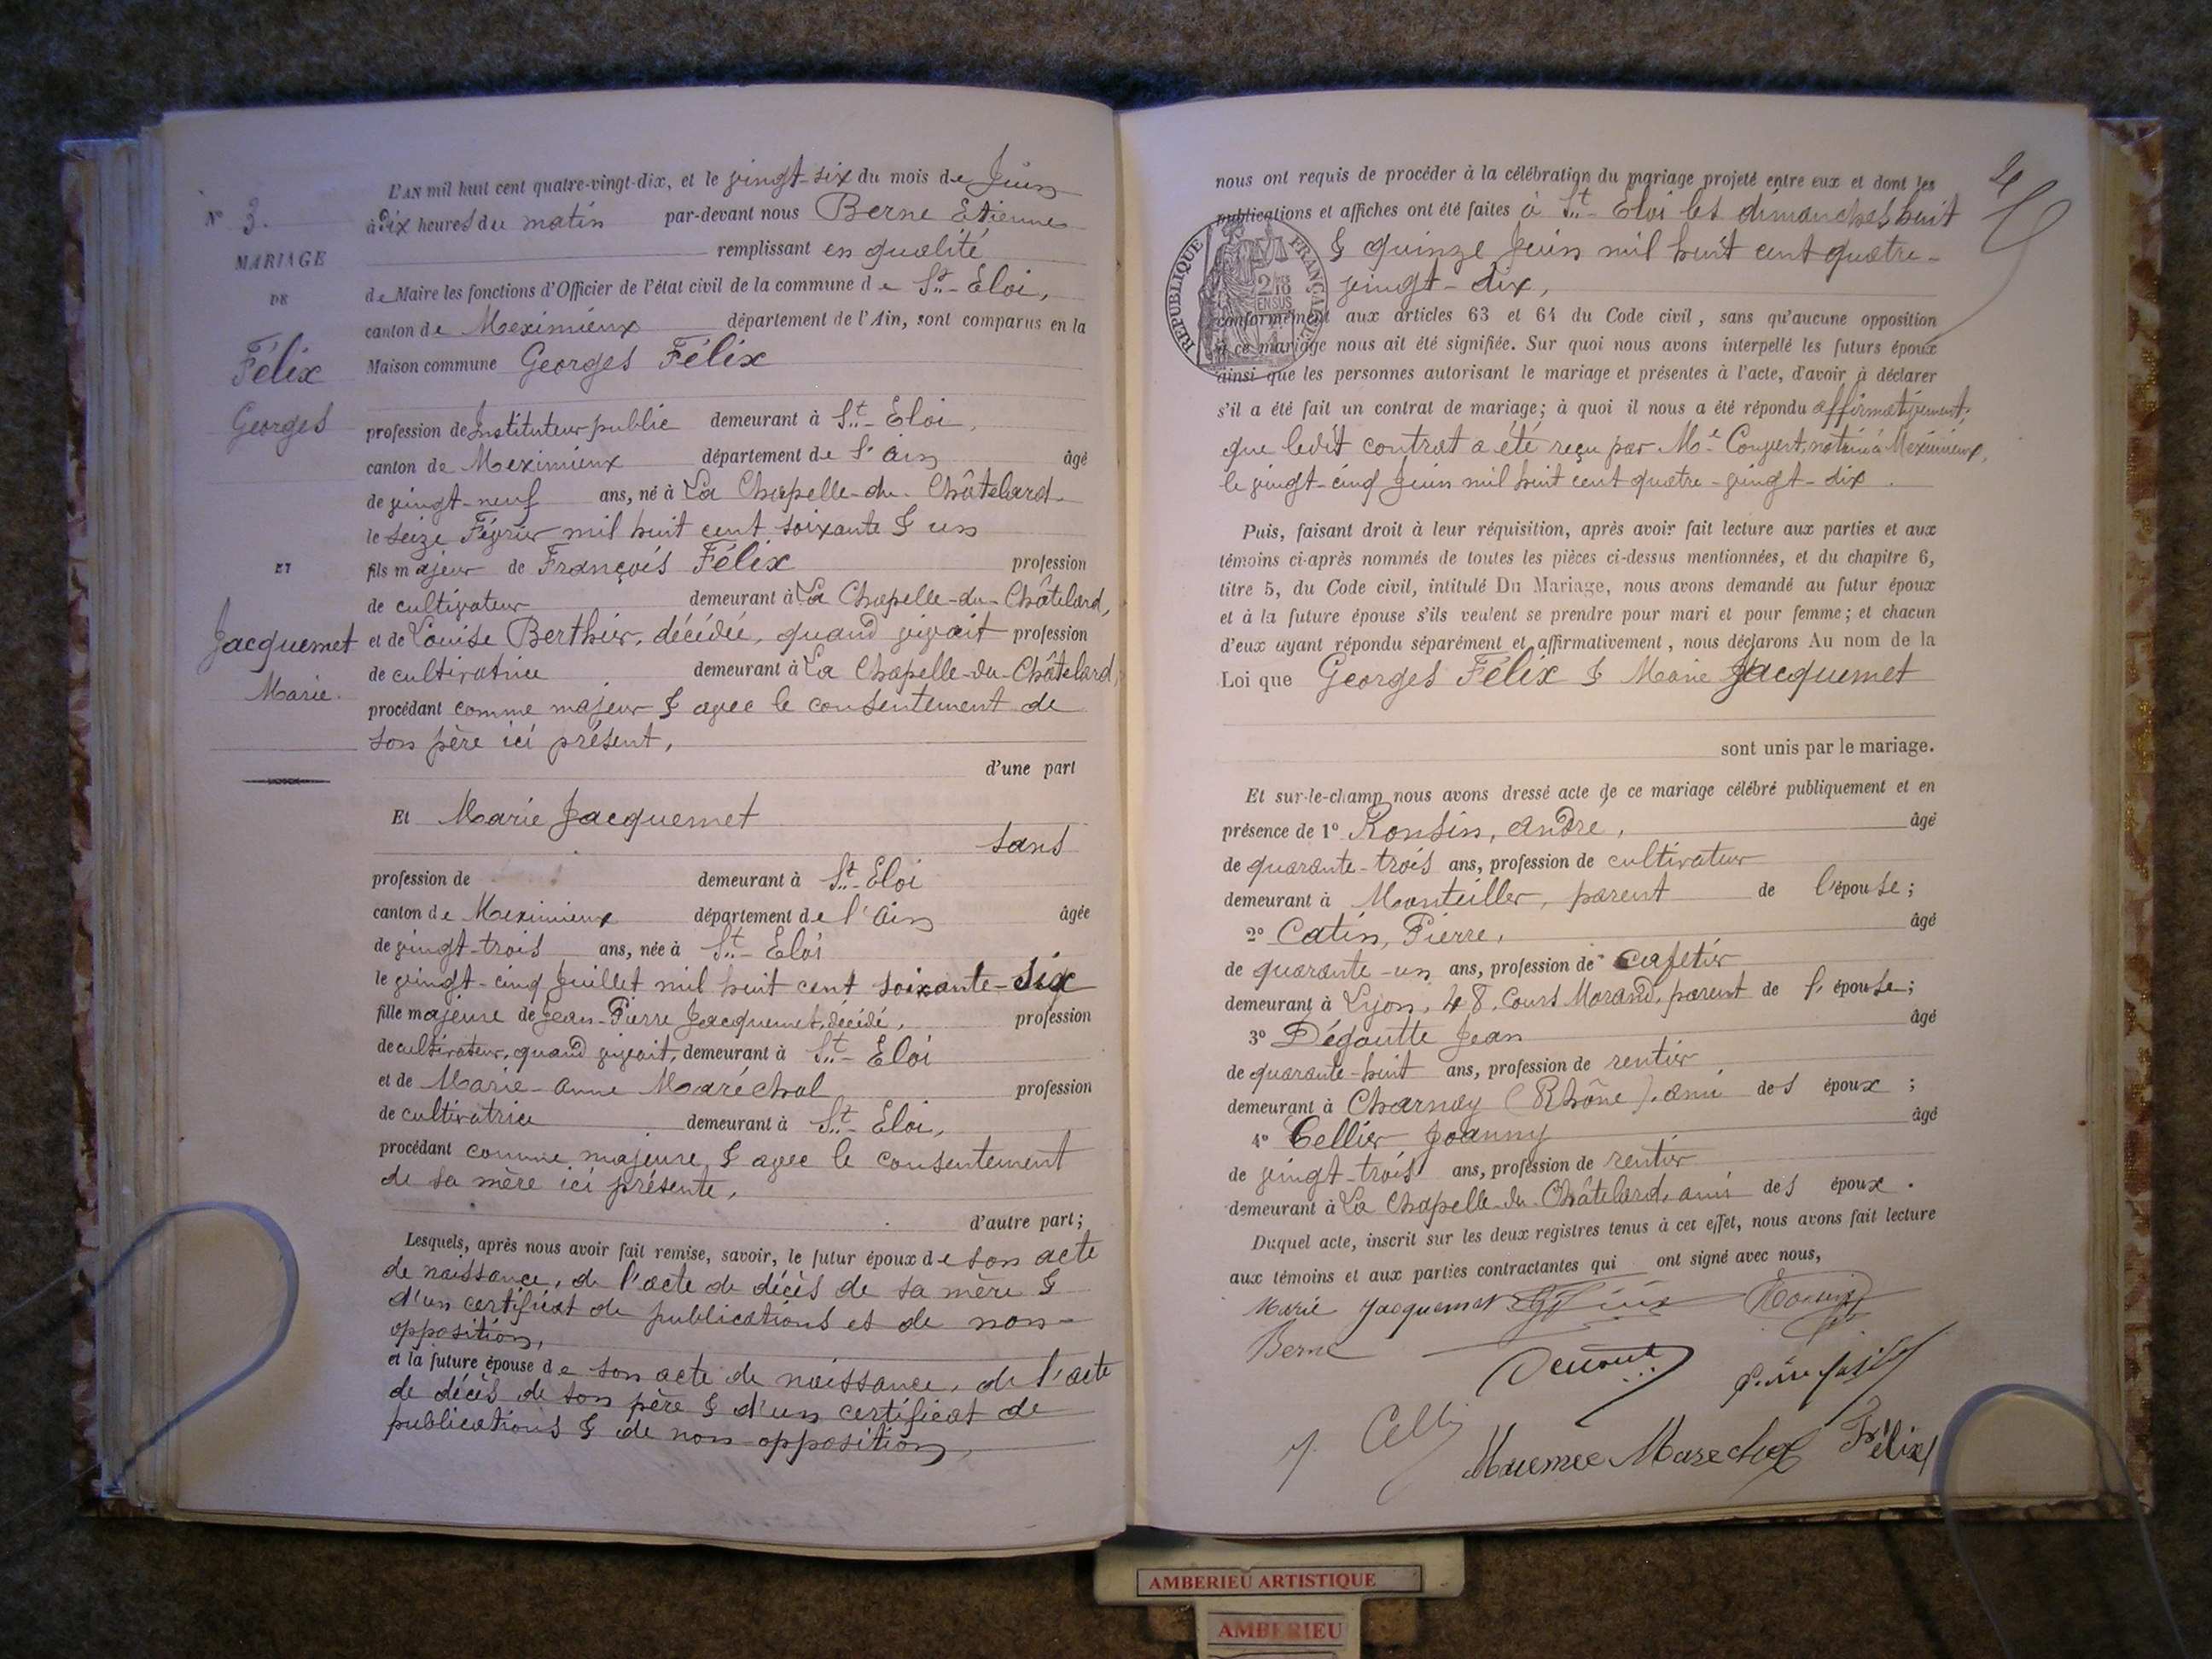 N° 3.
MARIAGE
DE
Félix
Georges
ET
Jacquemet
Marie.
L'AN mil huit cent quatre-vingt-dix, et le vingt-six du mois de Juin
à Dix heures du matin par-devant nous Berne Etienne
remplissant en qualité
de Maire les fonctions d'Officier de l'état civil de la commune de St- Eloi,
canton de Meximieux département de l'Ain, sont comparus en la
Maison commune Georges Félix
profession de Instituteur public demeurant à St- Eloi,
canton de Meximieux département de l'Ain âgé
de vingt-neuf ans, né à La Chapelle-du-Châtelard
le seize Février mil huit cent soixante & un
fils majeur de François Félix profession
de cultivateur demeurant à La Chapelle-du-Châtelard,
et de Louise Berthier, décédée, quand vivait profession
de cultivatrice demeurant à La Chapelle-du-Châtelard,
procédant comme majeur & avec le consentement de
son père ici présent,
d'une part
Et Marie Jacquemet
sans
profession de demeurant à St- Eloi
canton de Meximieux département de l'Ain âgée
de vingt-trois ans, née à St- Eloi
le vingt-cinq Juillet mil huit cent soixante-six
fille majeure de Jean-Pierre Jacquemet, décédé, profession
de cultivateur, quand vivait, demeurant à St- Eloi
et de Marie-Anne Maréchal profession
de cultivatrice demeurant à St- Eloi,
procédant comme majeure & avec le consentement
de sa mère ici présente,
d'autre part;
Lesquels, après nous avoir fait remise, savoir, le futur époux de son acte
de naissance, de l'acte de décès de sa mère &
d'un certificat de publications et de non-
opposition,
et la future épouse de son acte de naissance, de l'acte
de décès de son père & d'un certificat de
publications & de non-opposition,
nous ont requis de procéder à la célébration du mariage projeté entre eux et dont les
publications et affiches ont été faites à St- Eloi les dimanches huit
& quinze Juin mil huit cent quatre-
vingt-dix,
RÉPUBLIQUE FRANÇAISE
conformément aux articles 63 et 64 du Code civil, sans qu'aucune opposition
à ce mariage nous ait été signifiée. Sur quoi nous avons interpellé les futurs époux
ainsi que les personnes autorisant le mariage et présentes à l'acte, d'avoir à déclarer
s'il a été fait un contrat de mariage; à quoi il nous a été répondu affirmativement;
que ledit contrat a été reçu par Me Convert, notaire à Meximieux,
le vingt-cinq Juin mil huit cent quatre-vingt-dix.
Puis, faisant droit à leur réquisition, après avoir fait lecture aux parties et aux
témoins ci-après nommés de toutes les pièces ci-dessus mentionnées, et du chapitre 6,
titre 5, du Code civil, intitulé Du Mariage, nous avons demandé au futur époux
et à la future épouse s'ils veulent se prendre pour mari et pour femme; et chacun
d'eux ayant répondu séparément et affirmativement, nous déclarons Au nom de la
Loi que Georges Félix & Marie Jacquemet
sont unis par le mariage.
Et sur-le-champ nous avons dressé acte de ce mariage célébré publiquement et en
présence de 1° Ronsin, André, âgé
de quarante-trois ans, profession de cultivateur
demeurant à Monteiller, parent de l'épouse;
2° Catin, Pierre, âgé
de quarante-un ans, profession de cafetier
demeurant à Lyon, 48, Cours Morand, parent de l'épouse;
3° Dégoutte Jean âgé
de quarante-huit ans, profession de rentier
demeurant à Charnay (Rhône), ami des époux;
4° Cellier Joanny âgé
de vingt-trois ans, profession de rentier
demeurant à La Chapelle-du-Châtelard, ami des époux.
Duquel acte, inscrit sur les deux registres tenus à cet effet, nous avons fait lecture
aux témoins et aux parties contractantes qui ont signé avec nous,
Marie Jacquemet
Berne
Marechal Félix
AMBERIEU ARTISTIQUE
AMBERIEU